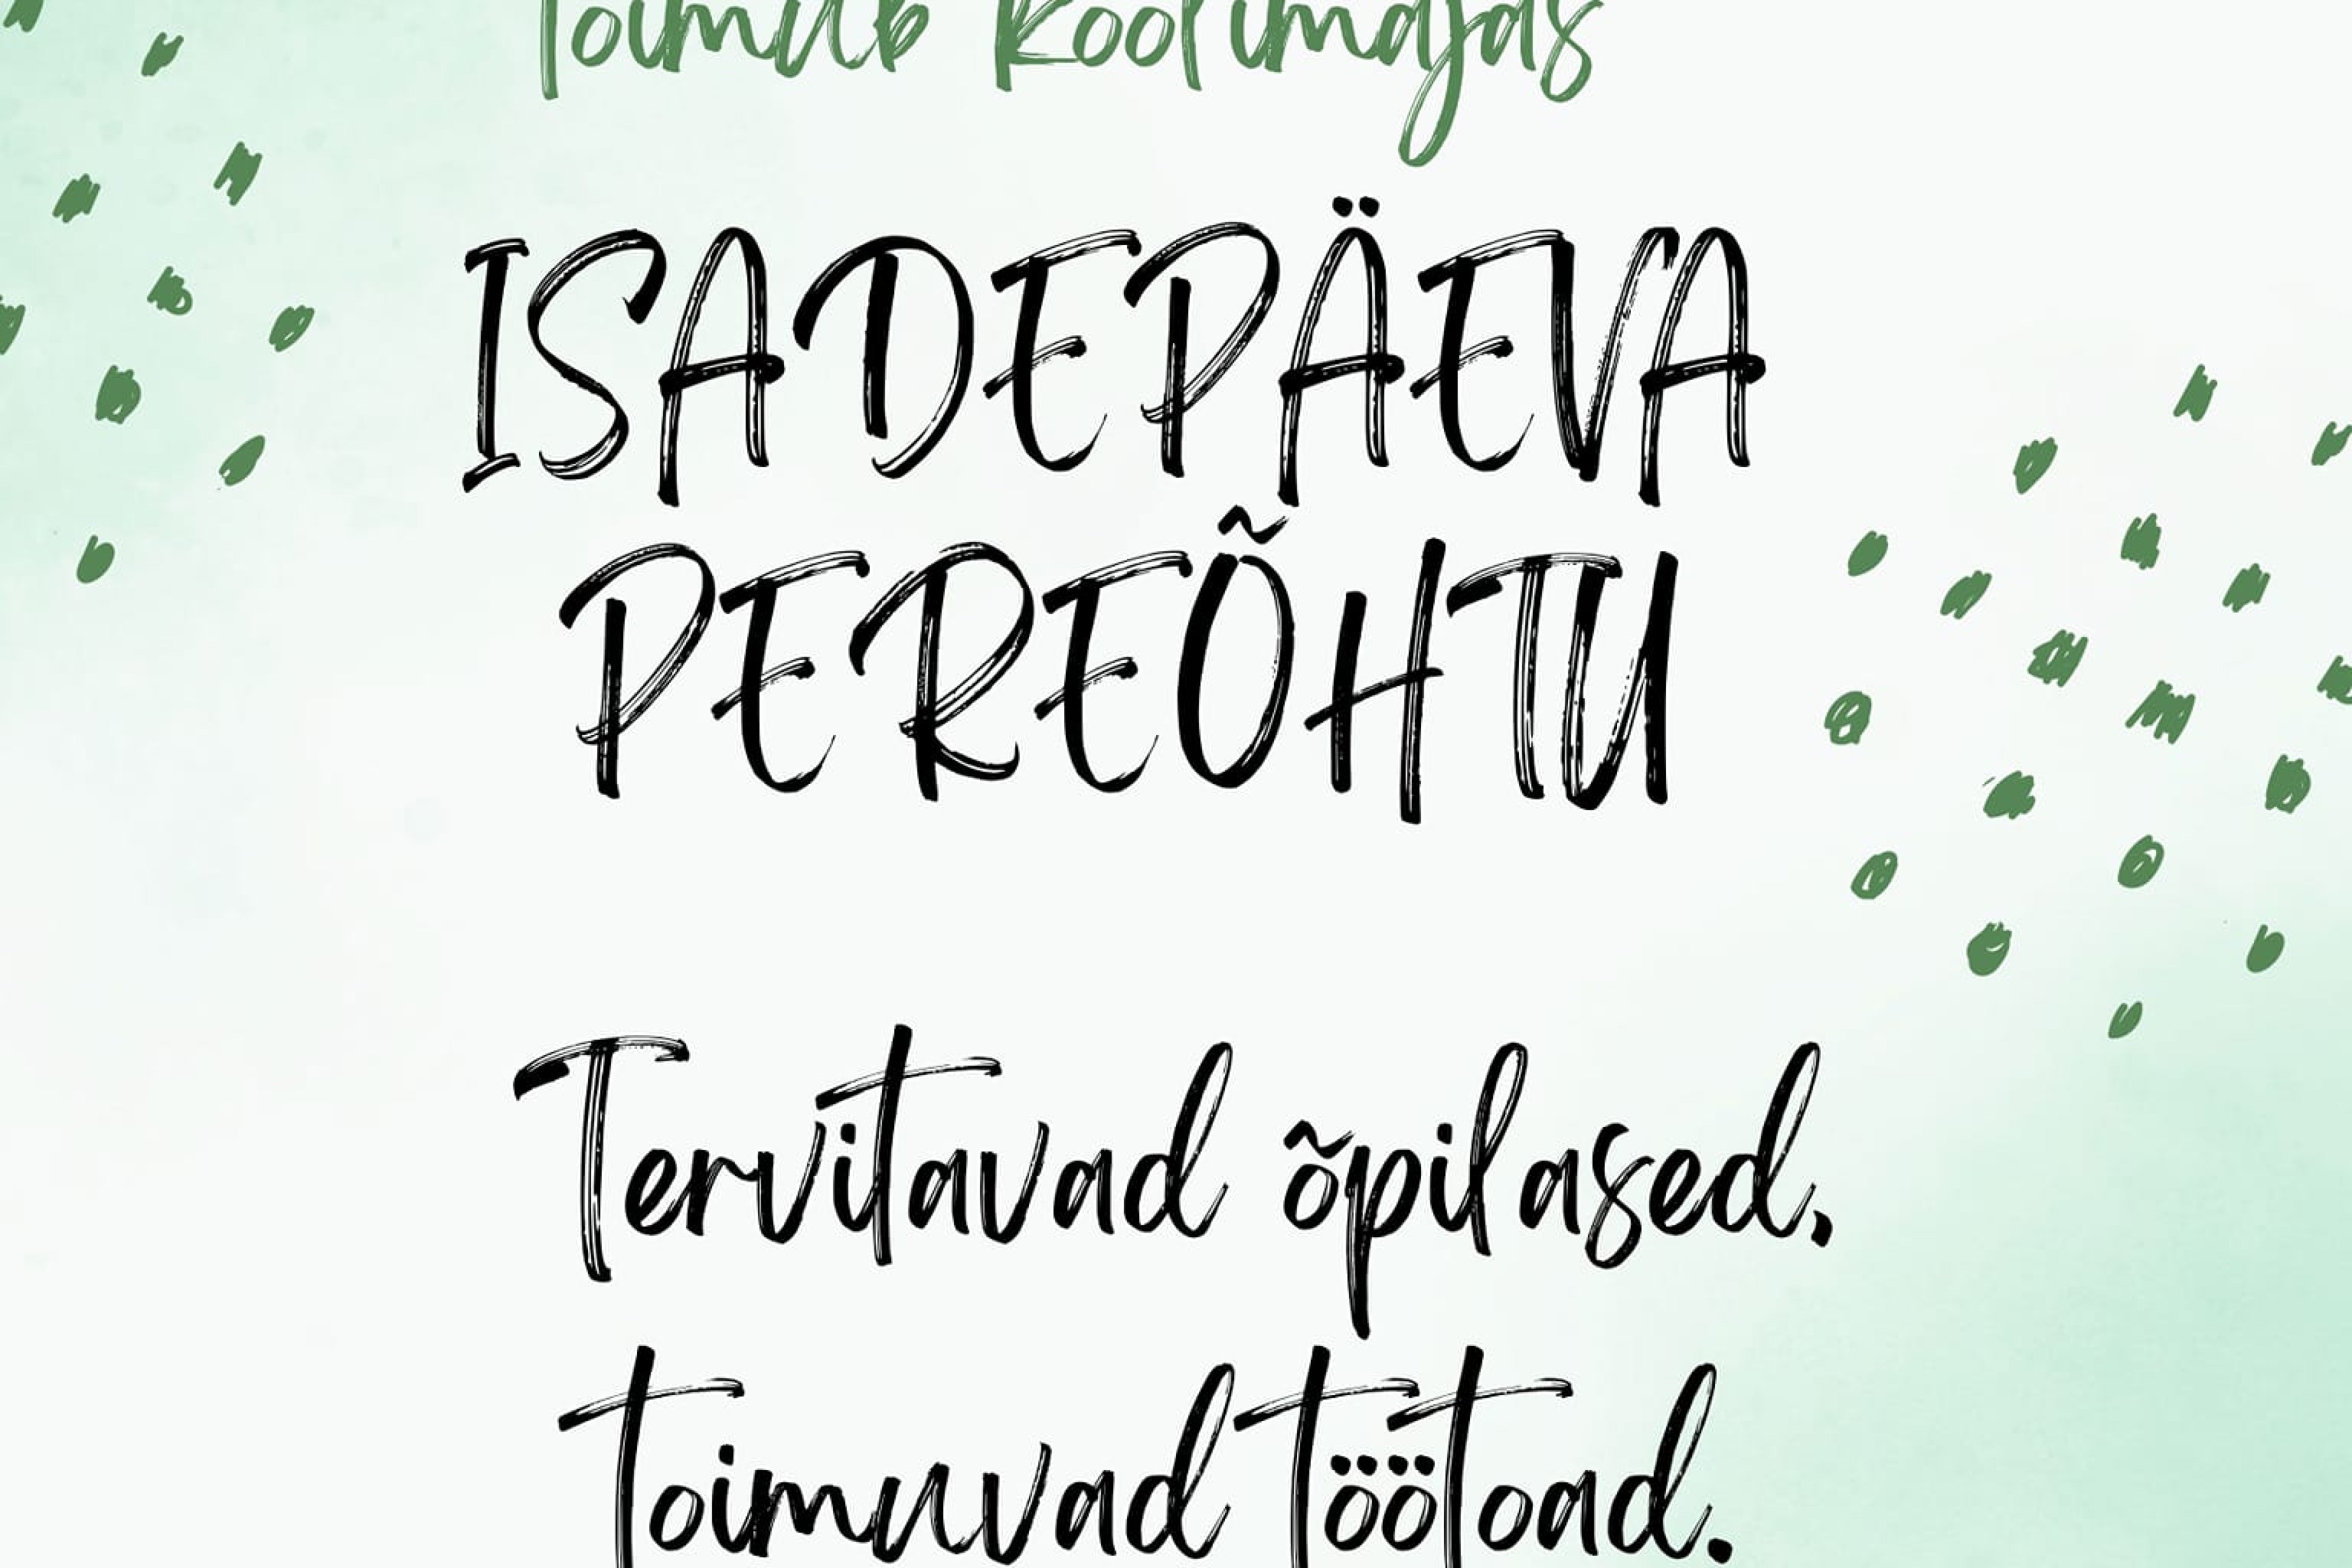 Toimub koolimajas
ISADEPÄEVA
PEREÕHTU
Tervitavad õpilased,
toimuvad töötoad.